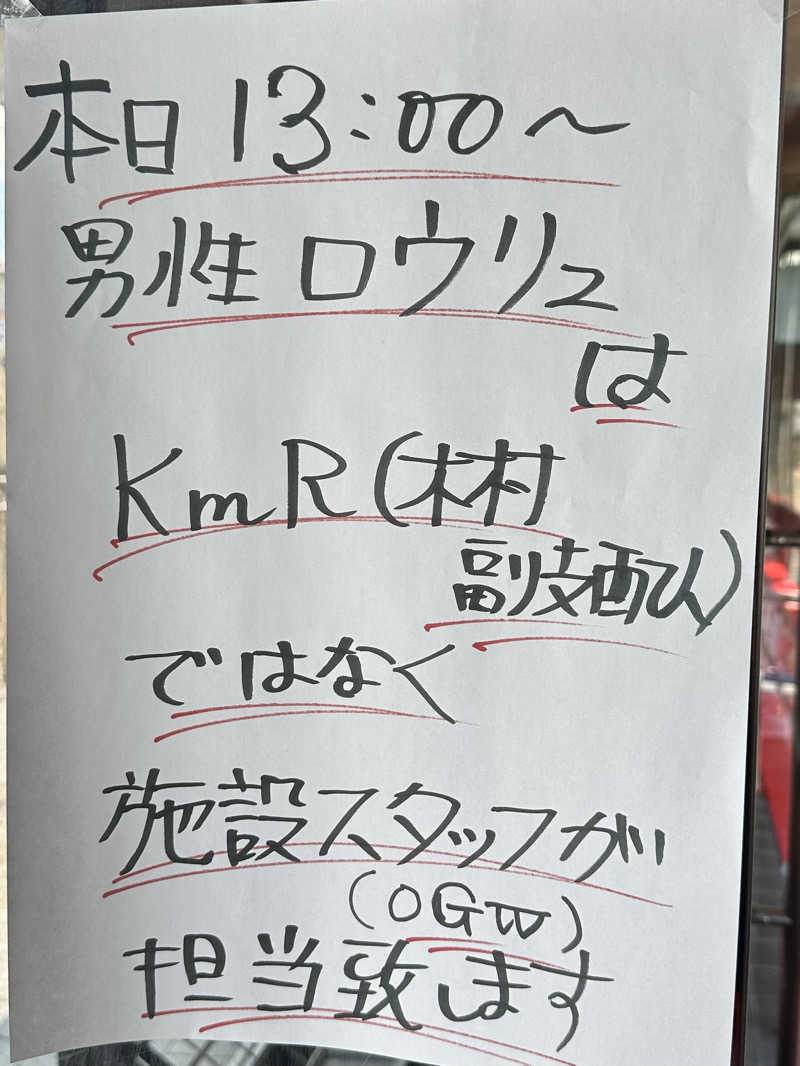 本日 13:00〜
男性 ロウリュ
は
KmR(木村
副支配人)
ではなく
施設スタッフが
(OGW)
担当致します